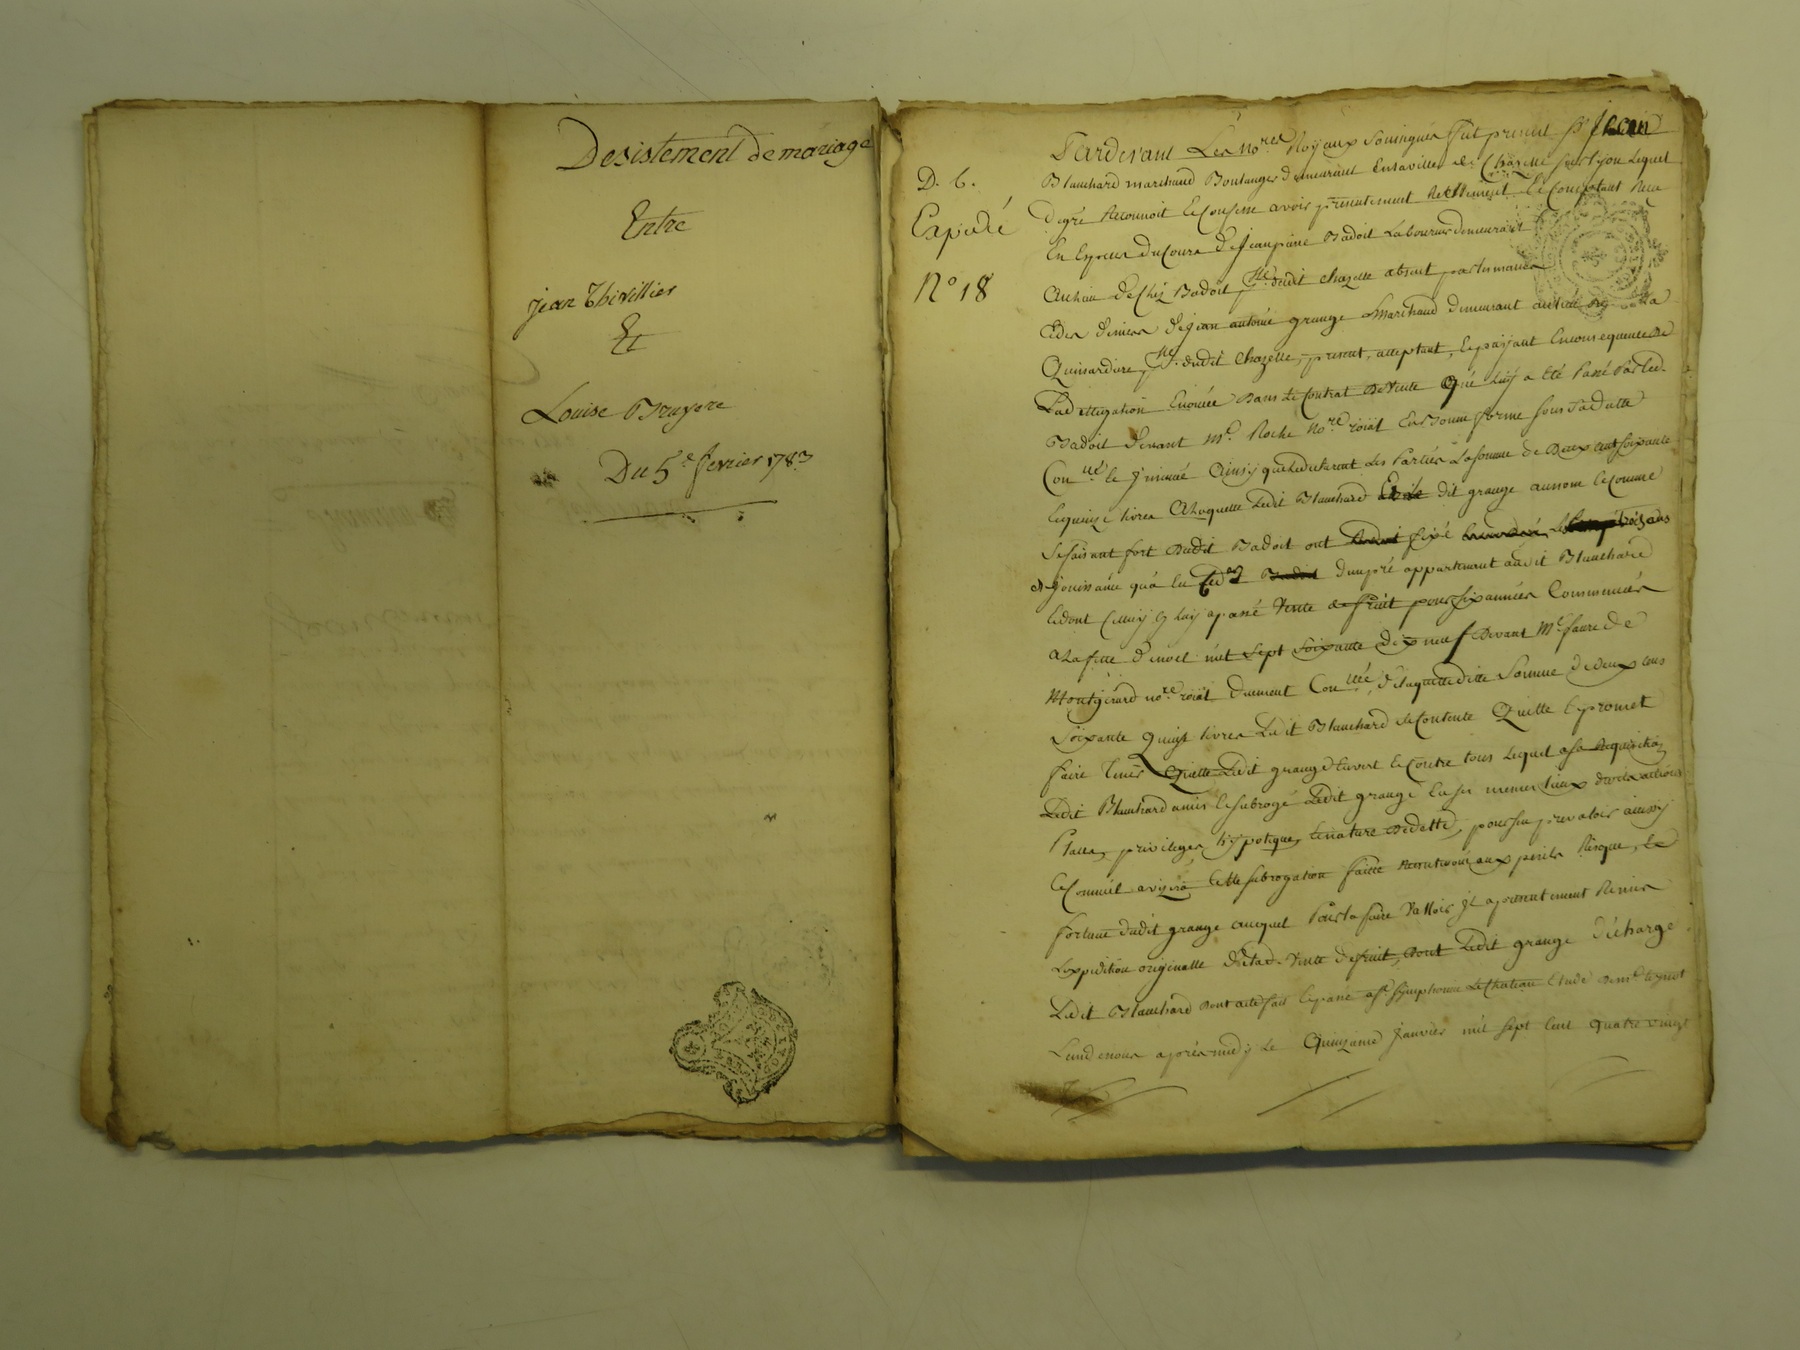 Desistement de mariage
Entre
jean Thivillier
Et
Louise Bruyere
Du 5e fevrier 1783
D. C.
Expedié
N° 18
Pardevant Les No.res Royaux Soussignés fut present Sr Jean
Blanchard marchand Boulanger demeurant en la ville de Chazelle sur Lyon Lequel
de gré Reconnoit & Confesse avoir presentement Reellement & Comptant Receu
En Especes du Cours de Jean pierre Badoit Laboureur demeurant
au hau de Chez Badoit psse dudit chazelle absent par les mains
& des deniers de jean antoine grange Marchand demeurant au lieu de la
Quinardiere psse dudit Chazelle, present, acceptant, & payant En consequence de
Lad. delegation Enoncée Dans Le Contrat de Vente qui luy a été Passé Par led.
Badoit devant Me. Roche No.re roial En Bonne forme sous Sa datte
Con.llé & Insinué Ainsy que Le disent Les Parties La somme de Deux cent soixante
& quinze livres A Laquelle Ledit Blanchard Et Le dit grange au nom & Comme
Se faisant fort Dudit Badoit ont fixé trois ans
de jouissance qu'a Eu Led. d'un pré appartenant audit Blanchard
& dont Celluy cy luy a passé Vente de fruit pour six années Commencées
a La fette de noel mil Sept Soixante dix neuf Devant Me. faure de
Montgirard no.re roial duement Con.llée, de Laquelle ditte Somme de deux cens
Soixante Quinze livres Ledit Blanchard se Contente Quitte & promet
faire tenir Quitte Ledit grange Envert & Contre tous Lequel a sa Requisition
Ledit Blanchard a mis & subrogé Ledit grange En ses memes lieux droits actions
Place, privileges, hypoteque, & nature De dette, pour s'en prevaloir ainsy
& Comme il avisera Cette subrogation faitte aux perils Risque, &
fortune dudit grange auquel Pour la faire Valloir Il a presentement Remis
L'expedition originalle de Lad. Vente de fruit, Dont Ledit grange décharge
Ledit Blanchard Dont acte fait & passé a St Symphorien Le Chateau Etude
Lund. apres midy Le Quinzaine Janvier mil sept Cent Quatre vingt